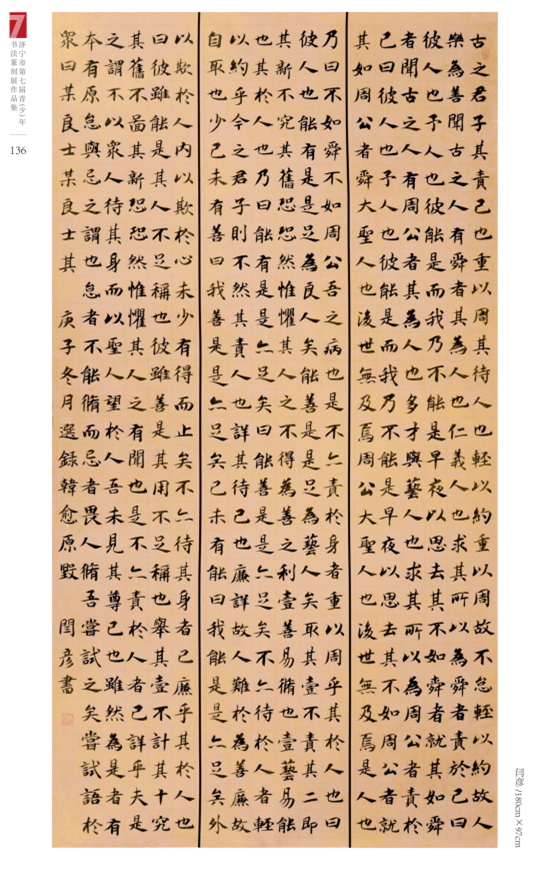 济宁市第七届青(少)年
书法篆刻展作品集
136
古之君子其責己也重以周其待人也輕以約重以周故不怠輕以約故人
樂為善聞古之人有舜者其為人也仁義人也求其所以為舜者責於己曰
彼人也予人也彼能是而我乃不能是早夜以思去其不如舜者就其如舜
者聞古之人有周公者其為人也多才與藝人也求其所以為周公者責於
己曰彼人也予人也彼能是而我乃不能是早夜以思去其不如周公者就
其如周公者舜大聖人也後世無及焉周公大聖人也後世無及焉是人也
乃曰不如舜不如周公吾之病也是不亦責於身者重以周乎其於人也曰
彼人也能有是是足為良人矣能善是是足為藝人矣取其壹不責其二即
其新不究其舊恐恐然惟懼其人之不得為善之利壹善易脩也壹藝易能
也其於人也乃曰能有是是亦足矣曰能善是是亦足矣不亦待於人者輕
以約乎今之君子則不然其責人也詳其待己也廉詳故人難於為善廉故
自取也少己未有善曰我善是是亦足矣己未有能曰我能是是亦足矣外
以欺於人內以欺於心未少有得而止矣不亦待其身者已廉乎其於人也
曰彼雖能是其人不足稱也彼雖善是其用不足稱也舉其壹不計其十究
其舊不啚其新恐恐然惟懼其人之有聞也是不亦責於人者已詳乎夫是
之謂不以眾人待其身而以聖人望於人吾未見其尊己也雖然為是者有
本有原怠與忌之謂也怠者不能脩而忌者畏人脩吾嘗試之矣嘗試語於
眾曰某良士某良士其 庚子冬月選録韓愈原毀 閆彦書
闫彦 /180cm×97cm